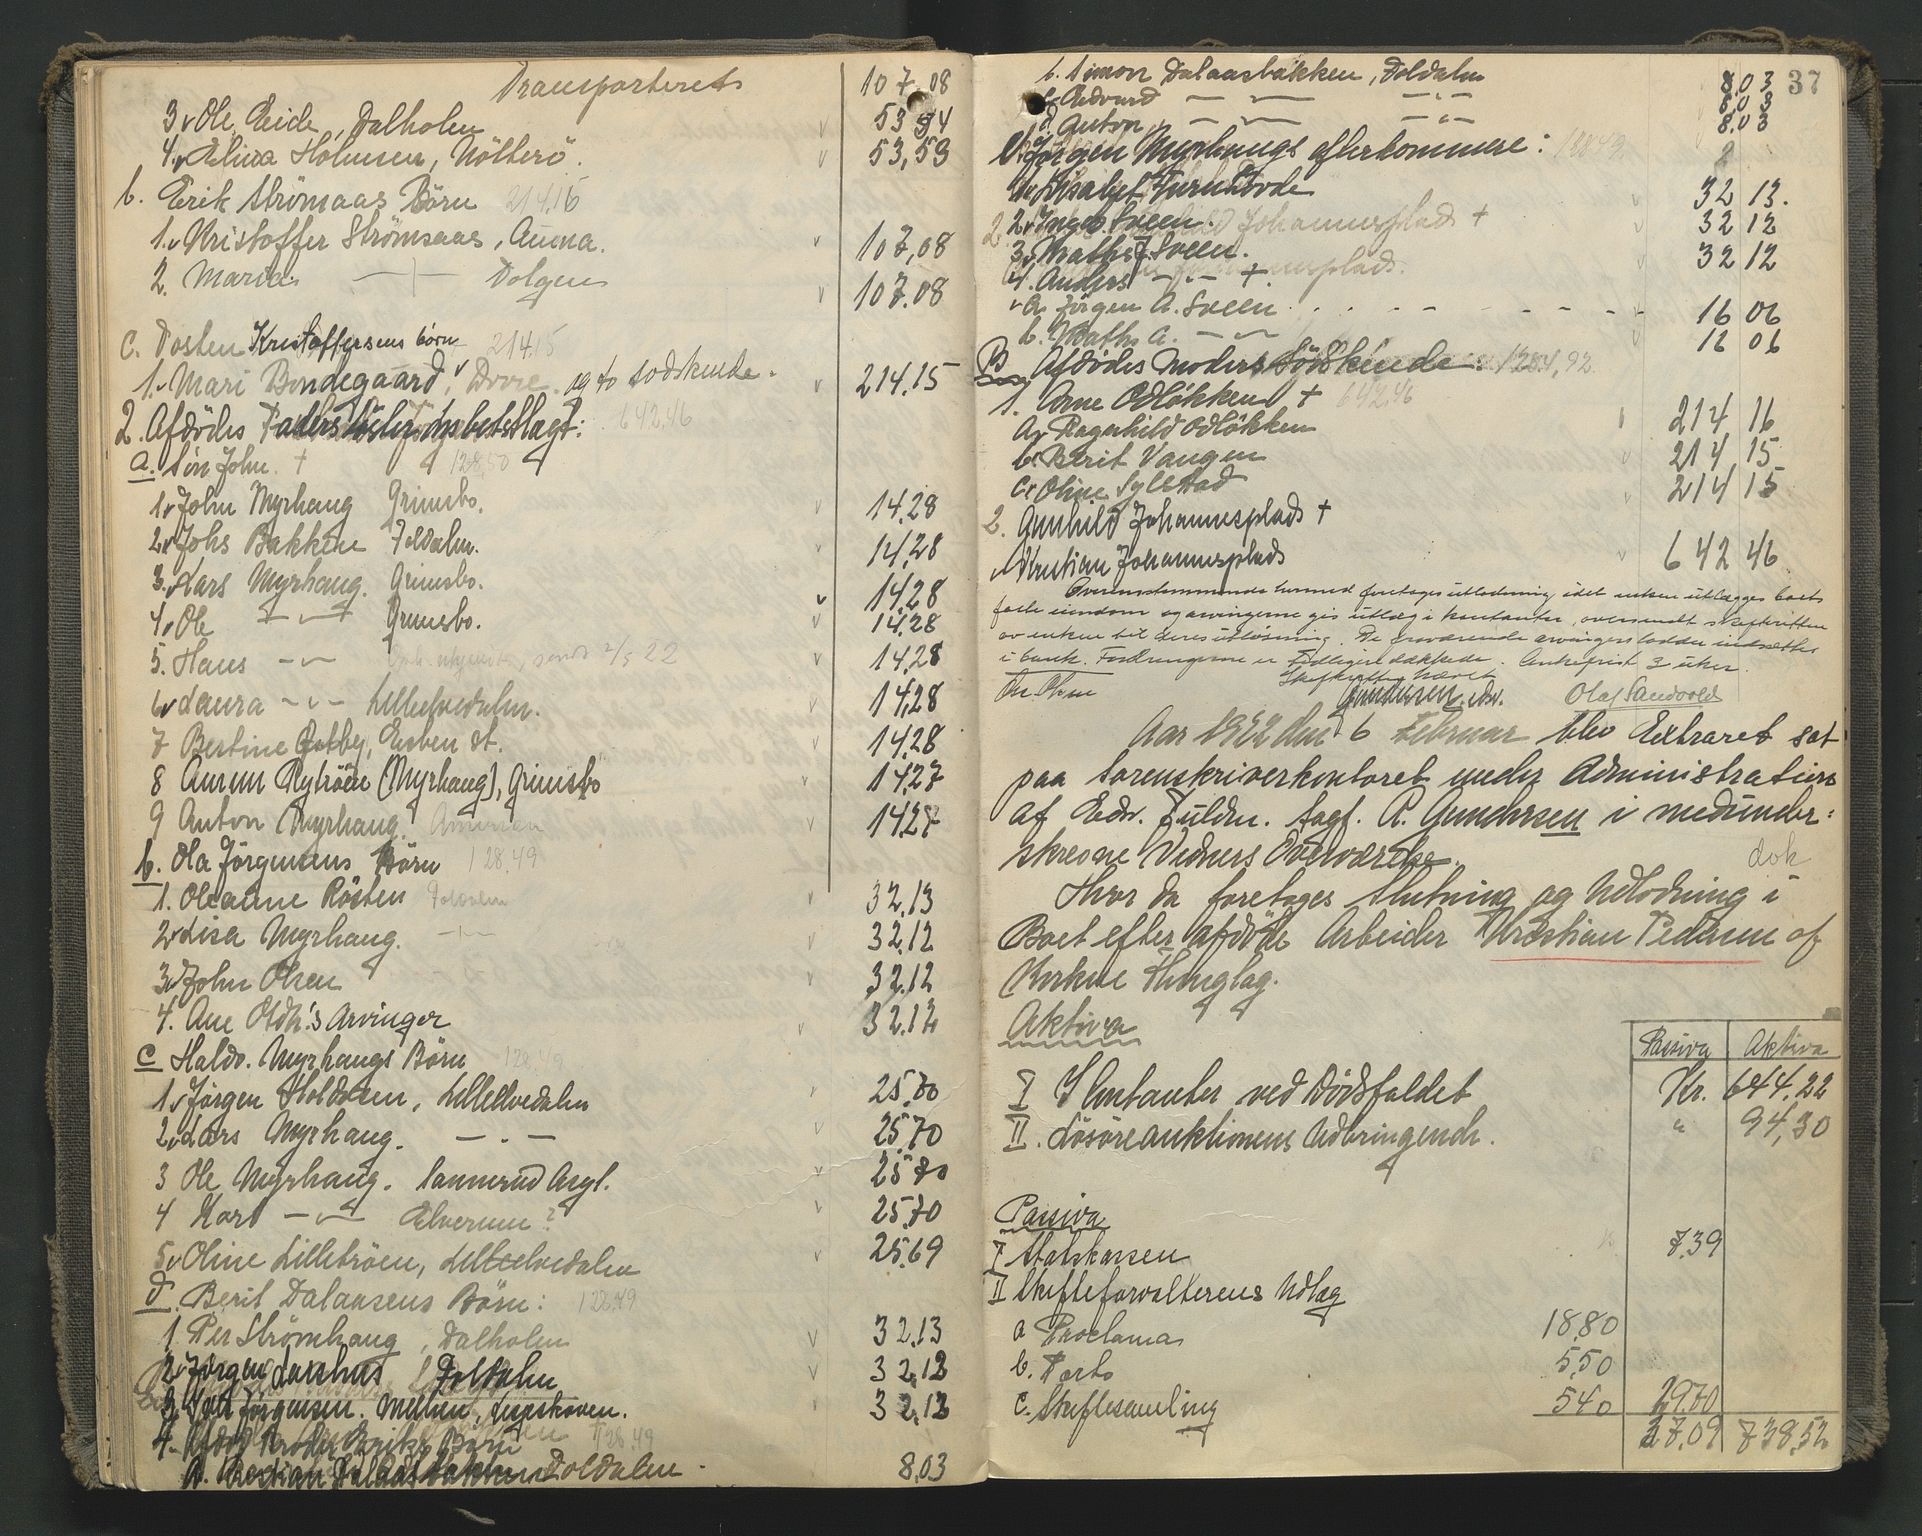 Transporteret 107,08
3 Ole Eide, Dalholm 53 54
4. Elina Holmsen, Nötterö. 53,53
b. Erik Strömaas Börn 214,15
1. Kristoffer Strömsaas, Auma. 107,08
2. Marie — " — Dolgen 107.08
C. Tosten Kristoffersens börn 214.15
1. Mari Bondegaard, Dovre. og to sødskende. 214.15
2. Afdödes Faders 642,46
a. Sön John. + 128,50
1. John Myrhaug Grimsbo. 14,28
2. Johs Bakken Foldalen. 14,28
3. Lars Myrhaug. Grimsbo. 14,28
4. Ole — " — Grimsbo. 14,28
5. Hans — " — 22 14,28
6. Laura — " — Lilleelvedalen. 14,28
7 Bertine Østby, Eisben st. 14,28
8 Rytröen (Myrhaug), Grimsbo 14,27
9 Anton Myrhaug. Amerika 14,27
b. Ola Jörgensens Börn 128,49
1. Oleanne Rösten Foldalen 32,13
2. Lisa Myrhaug. — " — 32,12
3. John Olsen 32,12
4. Ane Oldh.'s Arvinger 32,12
C Haldv. Myrhaugs Börn 128,49
1. Jörgen Haldvsen, Lilleelvedalen 25,70
2. Lars Myrhaug. — " — 25,70
3 Ole Myrhaug. 25,70
4 Kari — " — Elverum? 25,70
5. Oline Lilletröen, Lilleelvedalen 25,69
d. Berit Dalaasens Börn: 128,49
1. Per Strömhaug, Dalholm 32,13
2. Jörgen Foldalen 32,12
3. Jörgensen. 32,12
4. Afdöd Broder Eriks Börn
a. Kristian Dalaasbakken Foldalen. 8,03
37
b. Simon Dalaasbakken, Foldalen 8,03
c. Edvard — " — — " — 8,03
d. Anton — " — — " — 8,03
e. Jörgen Myrhaugs efterkommere: 128,49
1. Lisabet Furuhovde 32 13.
2. Inger Sveen 32 12
3. Mathis J. Sveen. 32 12
4. Anders — " — +
a. Jörgen A. Sveen 16 06
b. Mathis A. — " — 16 06
B Afdödes Moders Södskende: 1284,92
1. Arne Odlökken + 642,46
a. Ragnhild Odlökken 214 16
b. Berit Vangen 214 15
c. Oline Sylstad 214 15
2. Gunhild Johannesplads +
Kristian Johannesplads 642 46
Overensstemmende hermed foretages utlodning idet enken utlægges boets
faste eiendom og arvingerne gis utlæg i kontanter, oversendt skifteretten
av enken til deres utløsning. De fraværende arvingers lodder indsættes
i bank. Fordringerne er tidligere dækkede. Ankefrist 3 uker.
Skifteretten hævet
Gundersen. edsv. Olaf Sandvold
Aar 1922 den 6 Februar blev Extraret sat
paa Sorenskriverkontoret under Administration
af Edsv. Fuldm. Sagf. R. Gundersen i medunder-
skrevne Vidners Overværelse.
dok
Hvor da foretoges Slutning og Udlodning i
Boet efter afdöde Arbeider Kristian Pedersen af
Kvikne Thinglag.
Aktiva
Passiva Aktiva
I Kontanter ved Dödsfaldet Kr. 644,22
II. Lösöreauktionens Udbringende. " 94,30
Passiva
I Statskassen 7,39
II Skifteforvalterens Udlæg
a Proclama 18,80
b. Porto 5,50
c. Skiftesamling 540 29,70
37,09 738,52